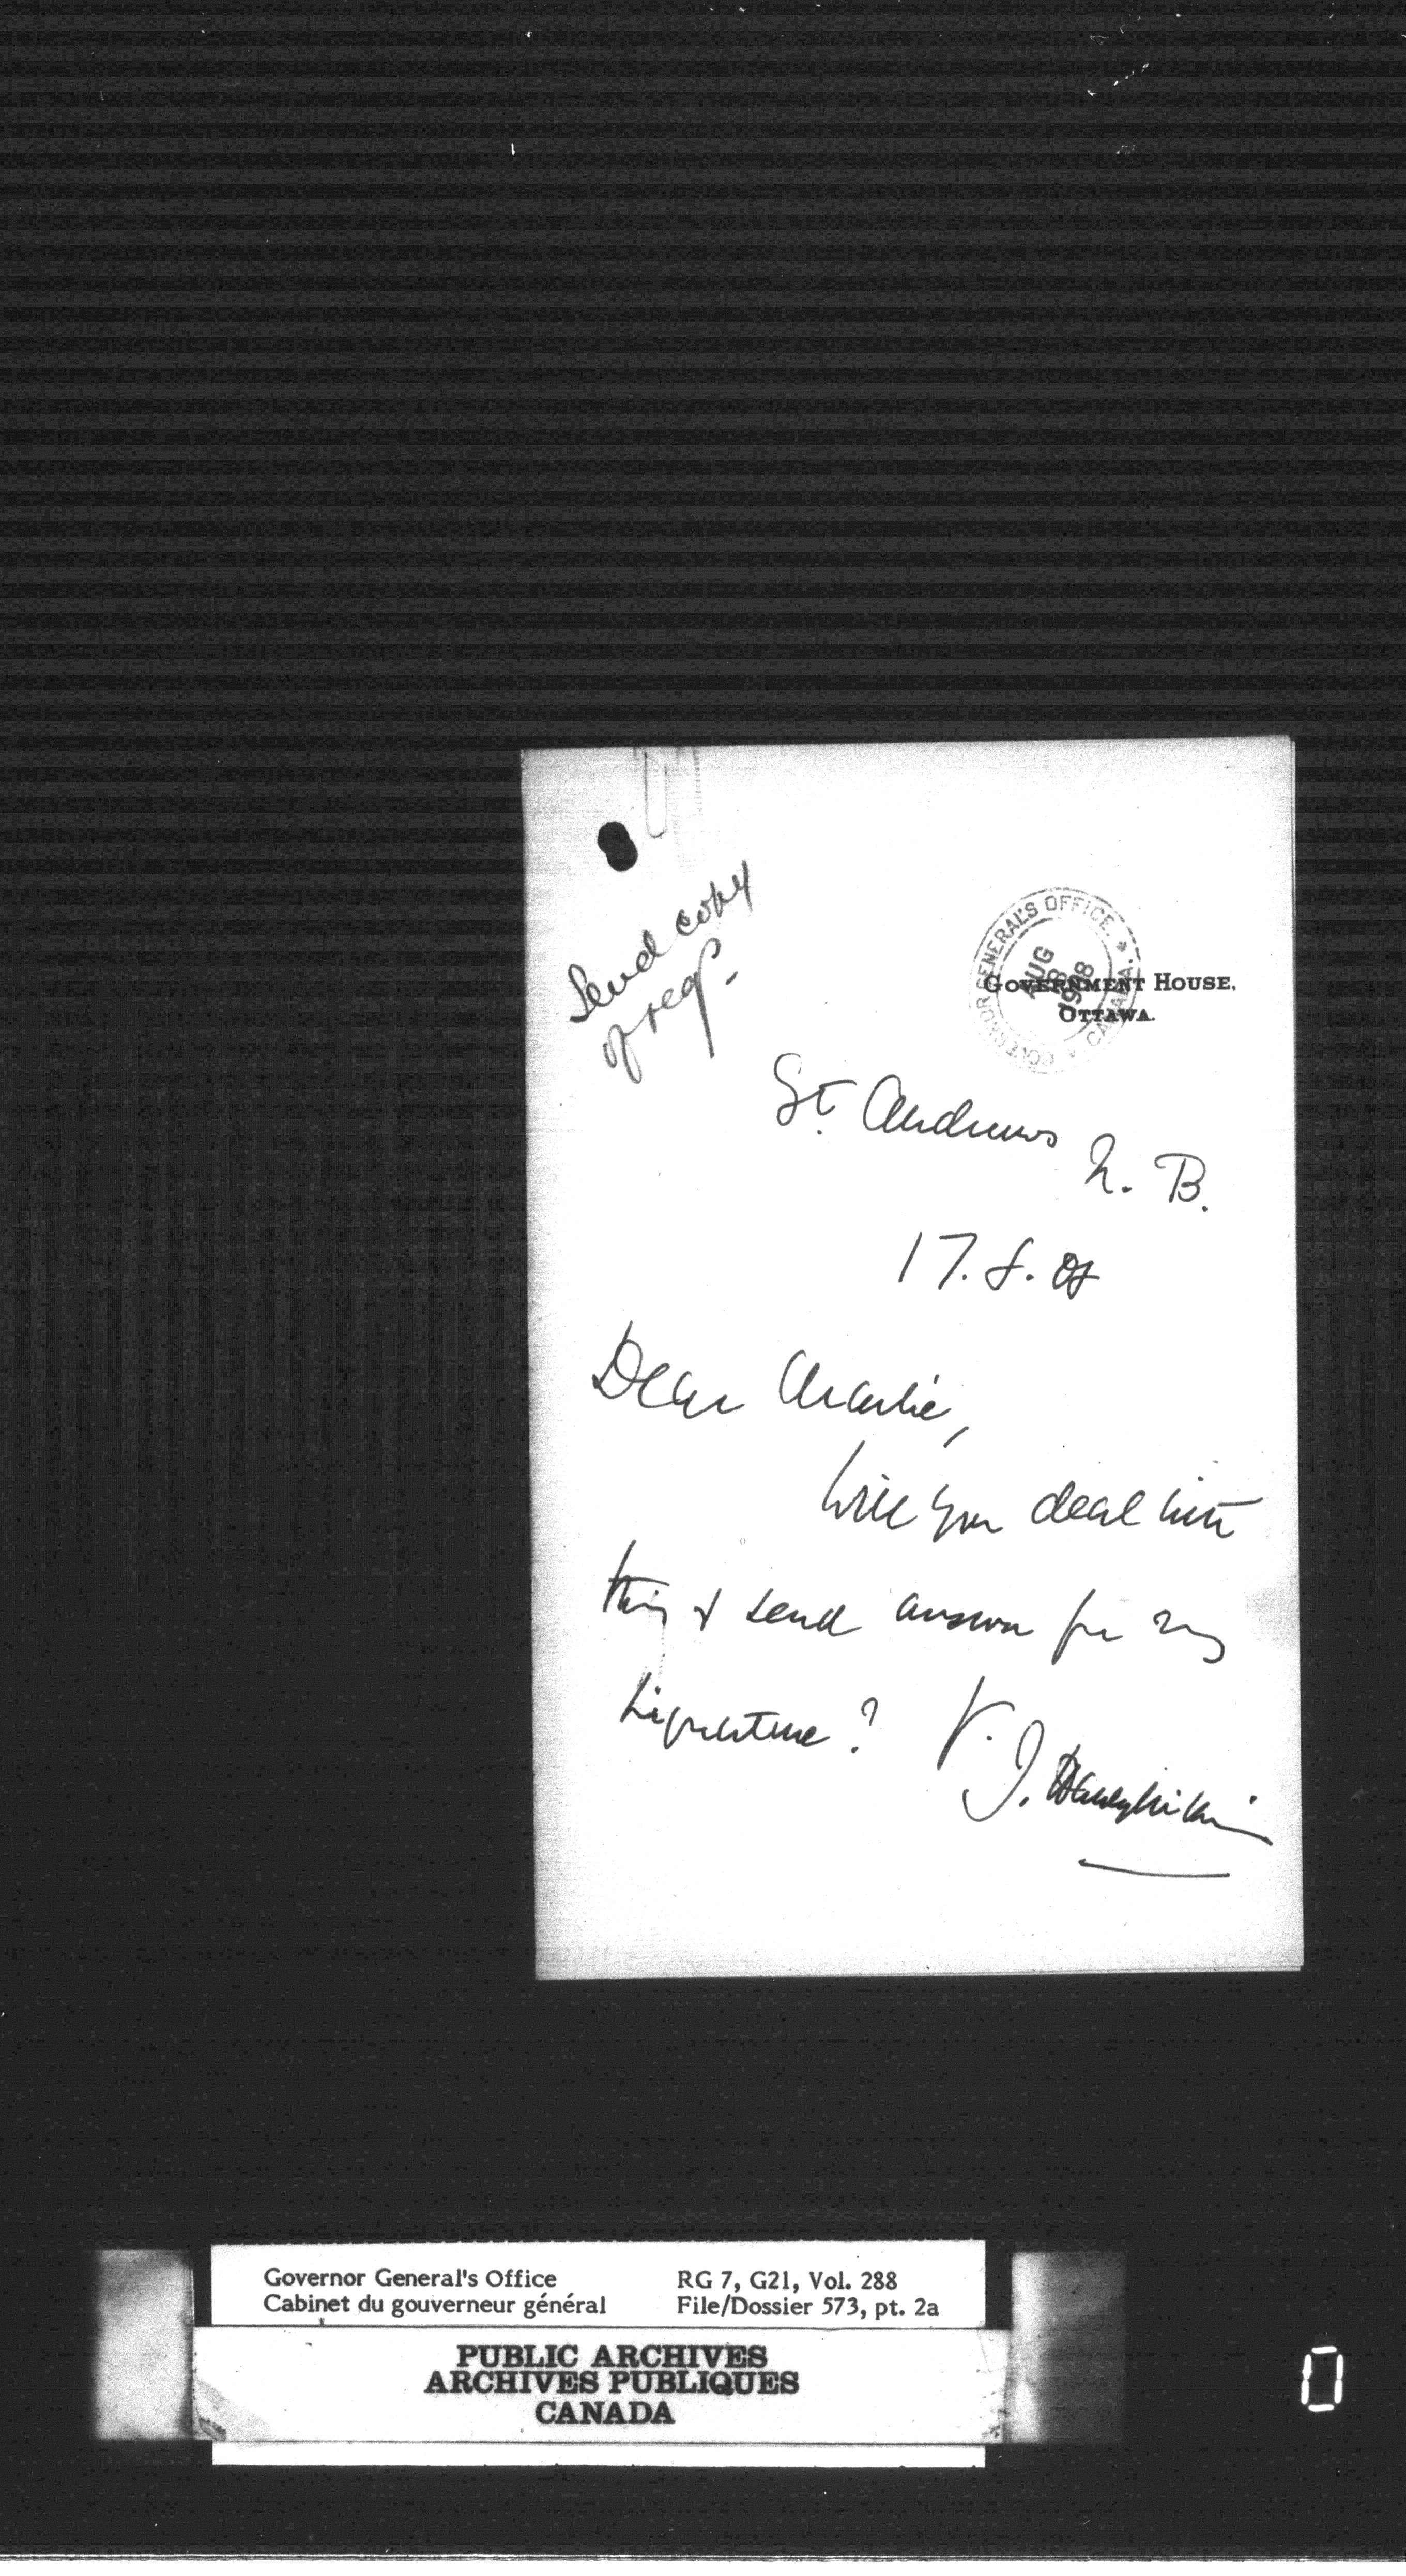 Send copy
of reqn.
GOVERNOR GENERAL'S OFFICE. * CANADA. *
AUG
1908
GOVERNMENT HOUSE,
OTTAWA.
St. Andrews
N. B.
17. 8. 08
Dear Charlie,
Will you deal with
this & send answer for my
signature? Y.
J. Hanbury Williams
Governor General's Office
Cabinet du gouverneur général
RG 7, G21, Vol. 288
File/Dossier 573, pt. 2a
PUBLIC ARCHIVES
ARCHIVES PUBLIQUES
CANADA
0